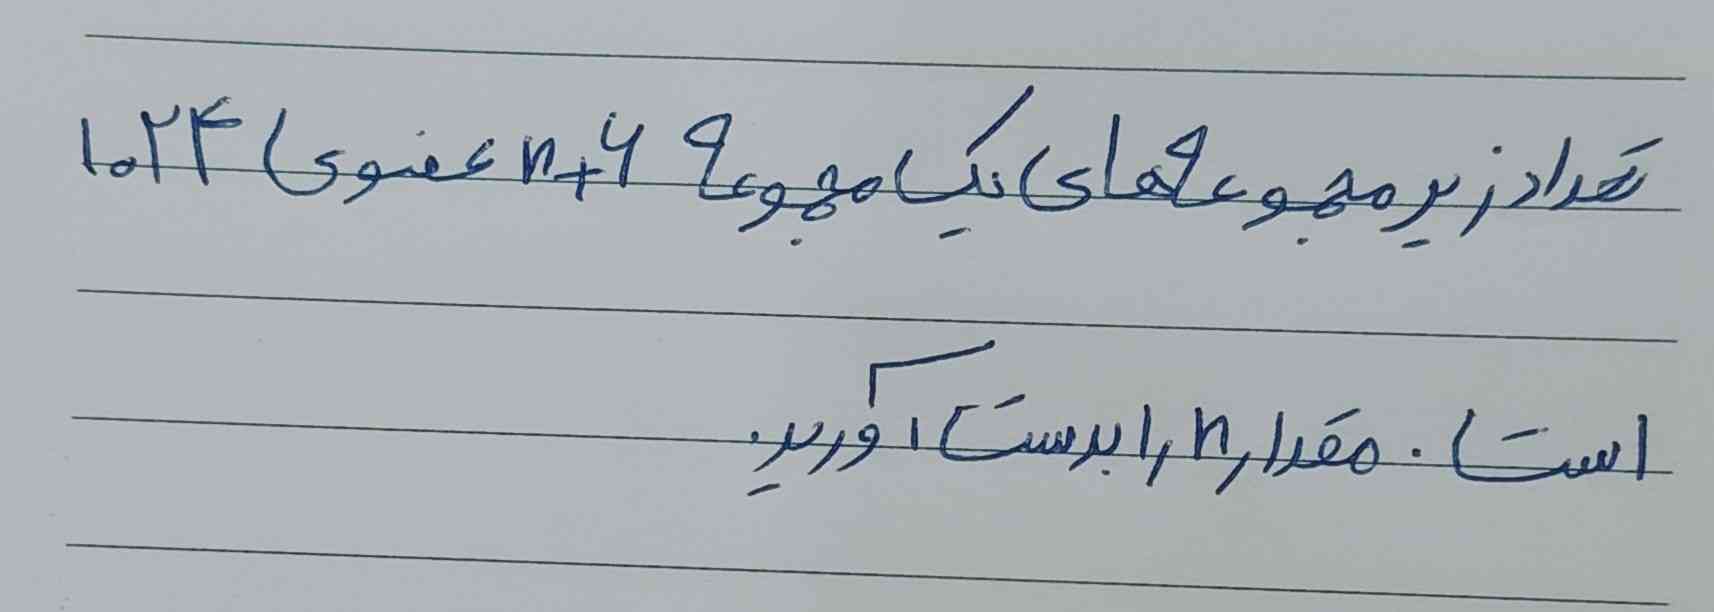 تعداد زیر مجموعه های یک مجموعه n+۶ عضوی ۱۰۲۴
است . مقدار n را بدست آورید.